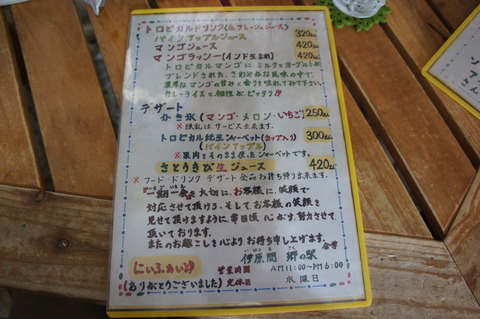 トロピカルドリンク(生フレッシュジュース)
パインアップルジュース 320
マンゴジュース 420
マンゴラッシー(インド生まれ) 420
トロピカルマンゴにミルクとヨーグルトが
ブレンドされた、さわやかな風味の中で、
濃厚なマンゴの甘みと香りを味わって下さい。
カレーライスと相性がピッタリ!!
デザート
かき氷(マンゴ・メロン・いちご) 250
※練乳はサービス出来ます。
トロピカル純生シャーベット(カップ入り) 300
(パインアップル)
※果肉をそのまま使ったシャーベットです。
さとうきび生ジュース 420
※フード ドリンク デザート 全品お持ち帰り出来ます。
※一期一会を大切に、お客様に、笑顔で
対応させて頂けう、そして、お客様の笑顔を
見せて頂けますように、常日頃 心がけ、努力させて
頂いております。
またのお越しを心より、お待ち申し上げます。
伊原間 郷の駅
にぃふぁぃゆ
(ありがとうございました)
営業時間 AM11:00〜PM6:00
定休日 水曜日